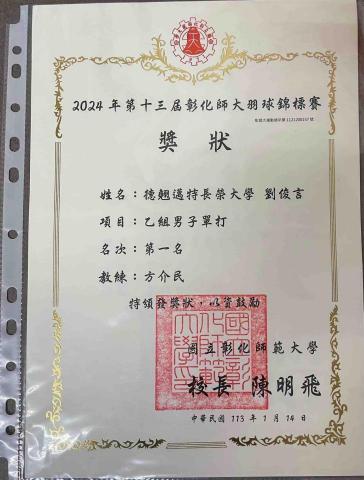 2024年第十三屆彰化師大羽球錦標賽
獎狀
姓名：德翹邁特長榮大學 劉俊言
項目：乙組男子單打
名次：第一名
教練：方介民
特頒發獎狀，以資鼓勵
國立彰化師範大學
校長 陳明飛
中華民國 113 年 1 月 14 日